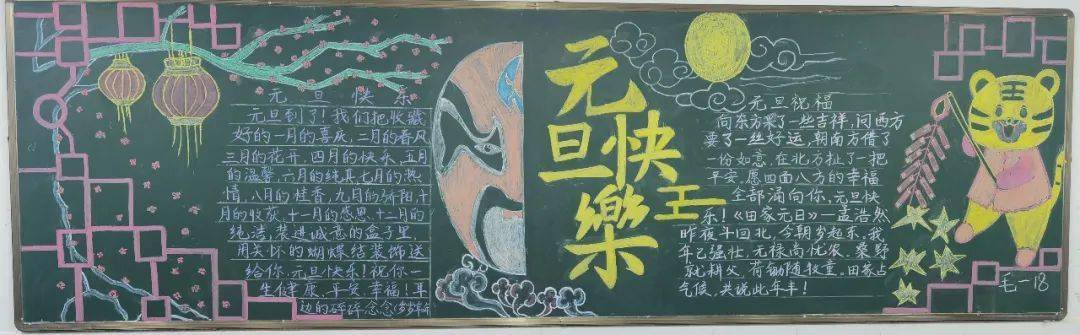 元旦快乐
元旦到了！我们把收藏
好的一月的喜庆，二月的春风
三月的花开，四月的快乐，五月
的温馨，六月的纯真七月的热
情，八月的桂香，九月的骄阳十
月的收获，十一月的感恩，十二月的
纯洁，装进诚意的盒子里
用关怀的蝴蝶结装饰送
给你，元旦快乐！祝你一
生健康、平安、幸福！耳
边的碎碎念念
元旦快樂
王
元旦祝福
向东方要了一些吉祥，问西方
要了一丝好运，朝南方借了
一份如意，在北方扯了一把
平安，愿四面八方的幸福
全部涌向你，元旦快
乐！《田家元日》—孟浩然
昨夜斗回北，今朝岁起东。我
年已强壮，无禄尚忧农。桑野
就耕父，荷锄随牧童。田家占
气候，共说此年丰！
毛一18